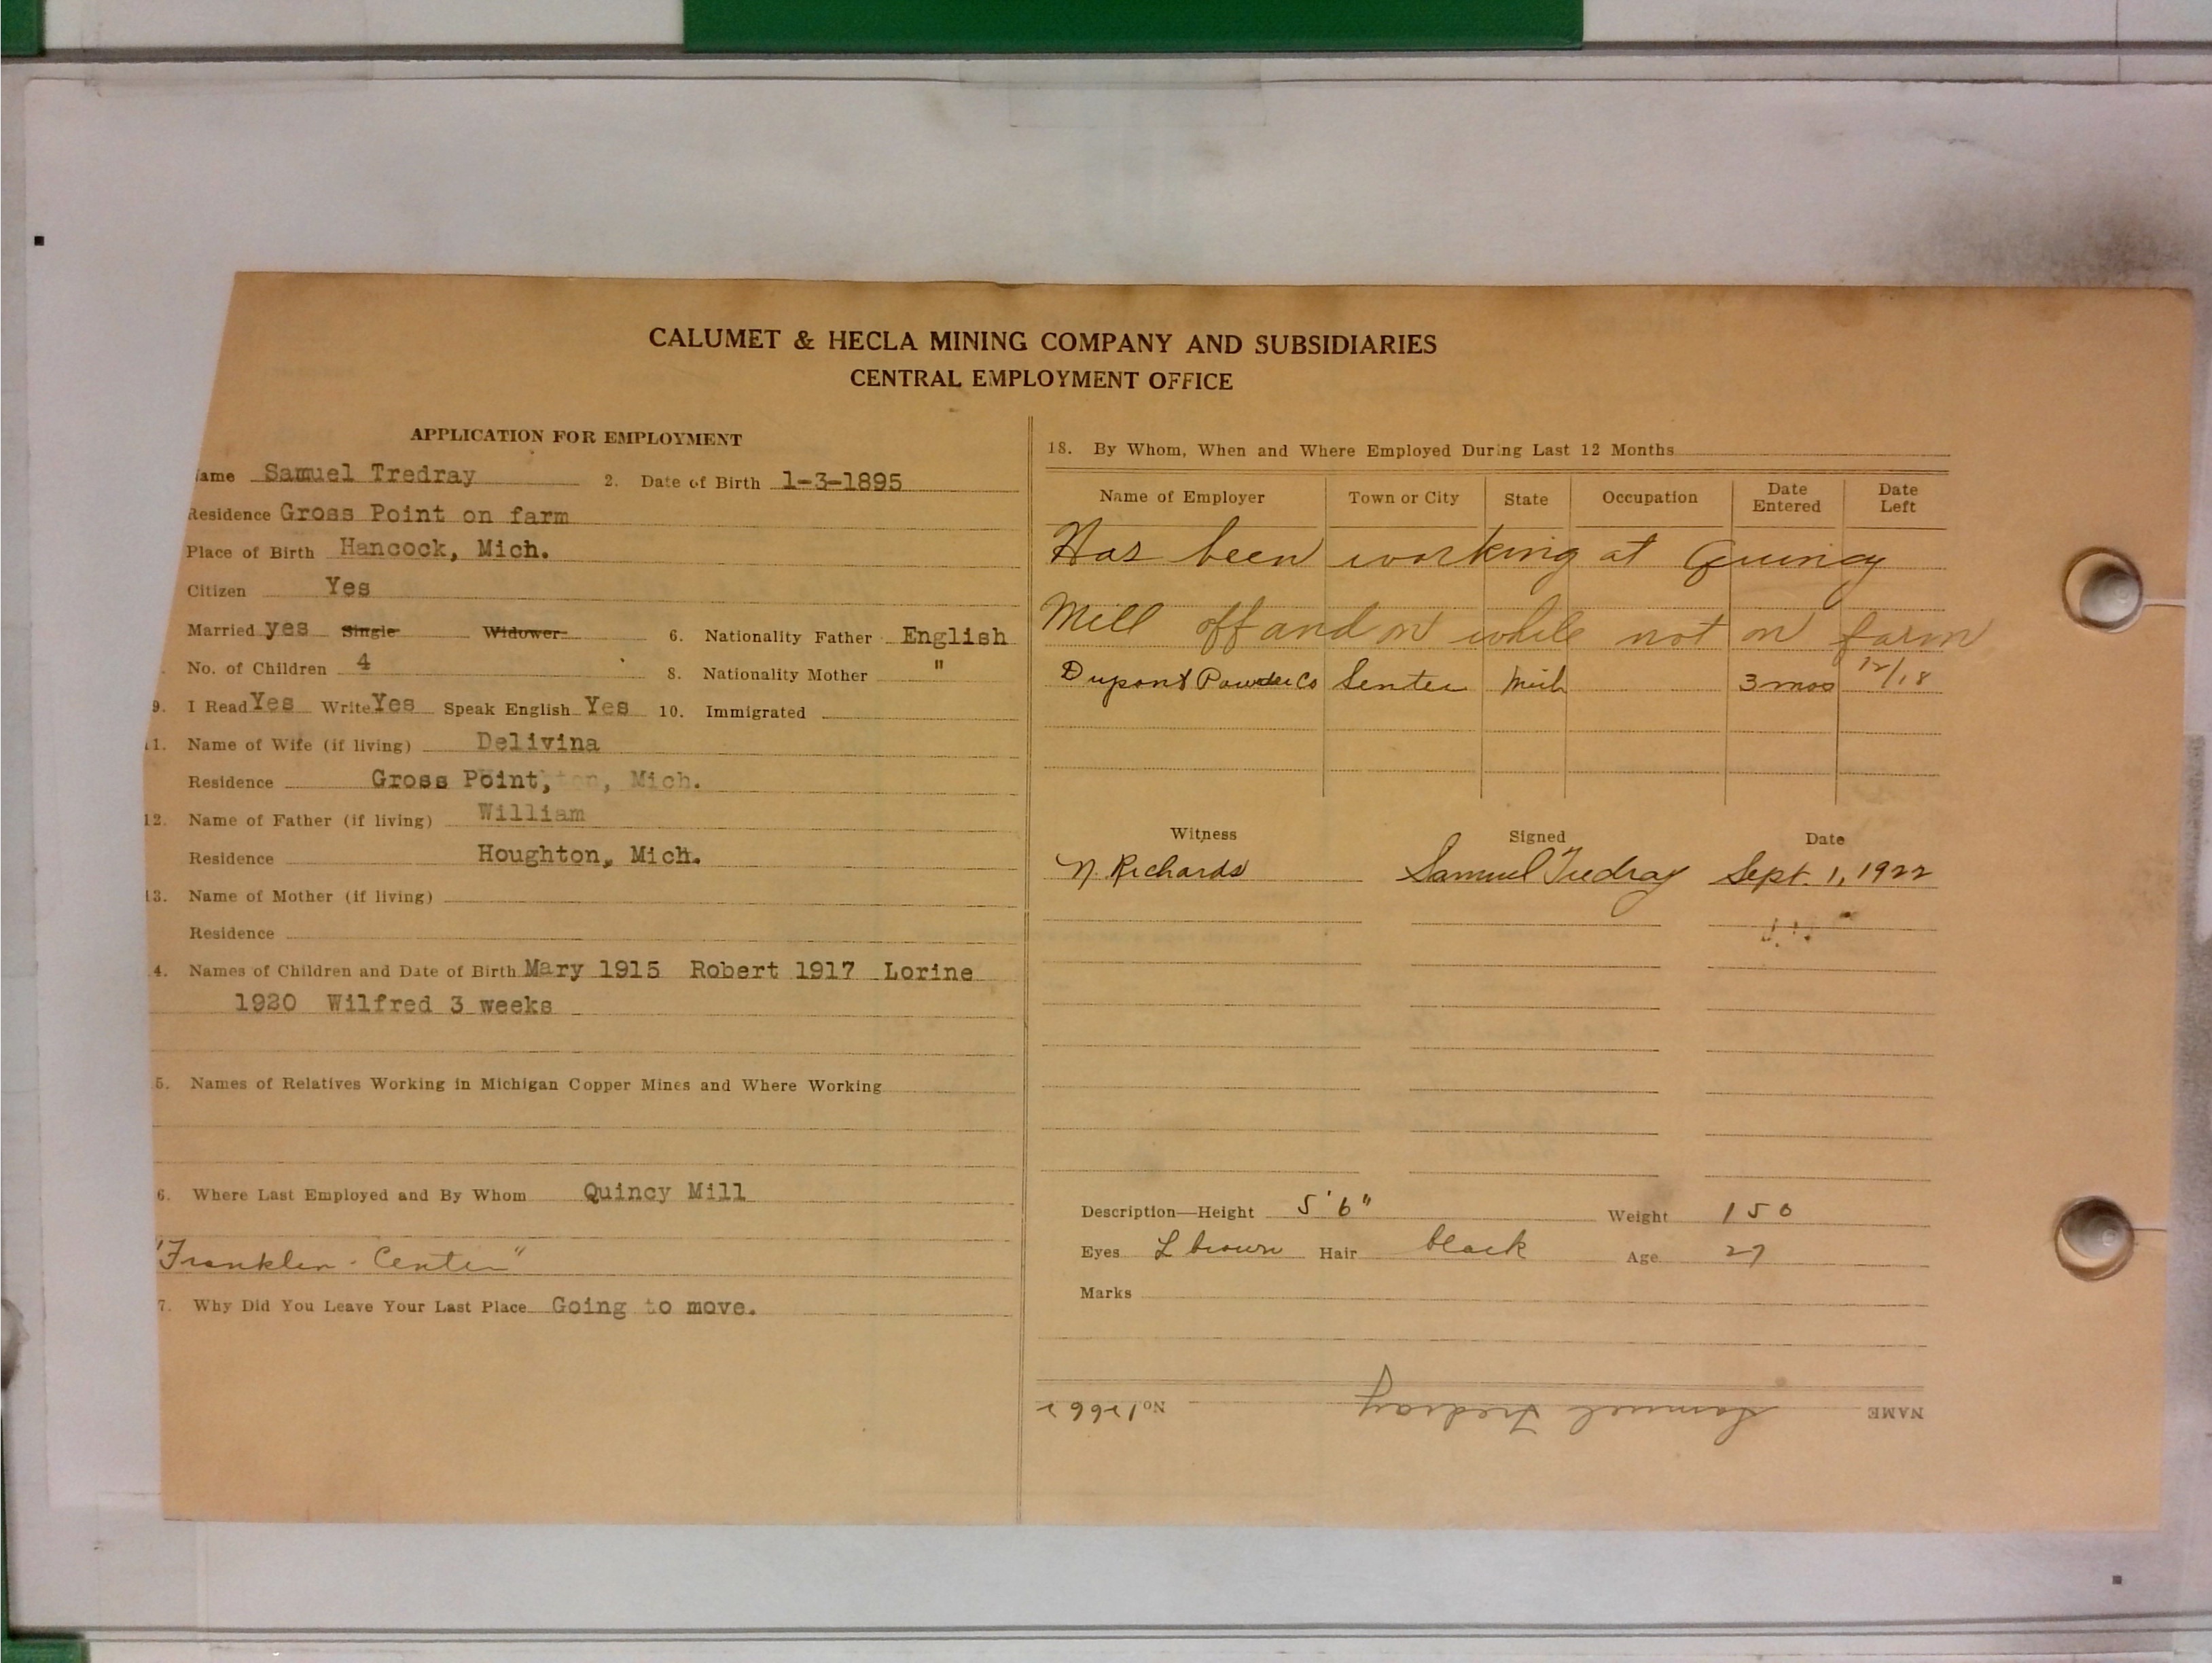 CALUMET & HECLA MINING COMPANY AND SUBSIDIARIES
CENTRAL EMPLOYMENT OFFICE
APPLICATION FOR EMPLOYMENT
ame Samuel Tredray 2. Date of Birth 1-3-1895
Residence Gross Point on farm
Place of Birth Hancock, Mich.
Citizen Yes
Married yes Single Widower 6. Nationality Father English
No. of Children 4 8. Nationality Mother "
9. I Read Yes Write Yes Speak English Yes 10. Immigrated
11. Name of Wife (if living) Delivina
Residence Gross Point, Mich.
12. Name of Father (if living) William
Residence Houghton, Mich.
13. Name of Mother (if living)
Residence
4. Names of Children and Date of Birth Mary 1915 Robert 1917 Lorine
1920 Wilfred 3 weeks
5. Names of Relatives Working in Michigan Copper Mines and Where Working
6. Where Last Employed and By Whom Quincy Mill
"Franklin - Center"
7. Why Did You Leave Your Last Place Going to move.
18. By Whom, When and Where Employed During Last 12 Months
Name of Employer Town or City State Occupation Date Entered Date Left
Has been working at Quincy
Mill off and on while not on farm
Dupont Powder Co Senter Mich 3 mos 12/18
Witness Signed Date
N. Richards Samuel Tredray Sept. 1, 1922
Description—Height 5'6" Weight 150
Eyes L brown Hair black Age 27
Marks
NAME Samuel Tredray No. 12662